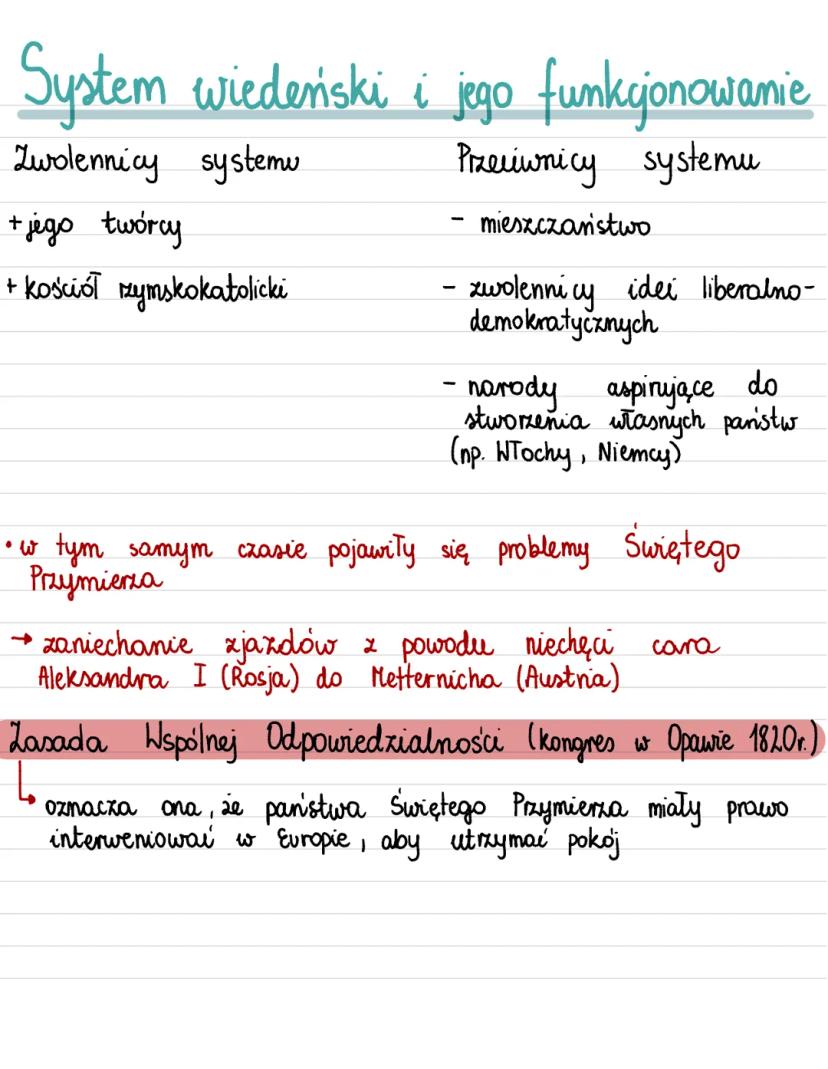 System wiedeński i jego funkcjonowanie
Zwolennicy systemu
+ jego twórcy
+ kościół rzymskokatolicki
Przeciwnicy systemu
- mieszczaństwo
- zwolennicy idei liberalno-
demokratycznych
- narody aspirujące do
stworzenia własnych państw
(np. Włochy, Niemcy)
• w tym samym czasie pojawiły się problemy Świętego
Przymierza
→ zaniechanie zjazdów z powodu niechęci cara
Aleksandra I (Rosja) do Metternicha (Austria)
Zasada Wspólnej Odpowiedzialności (kongres w Opawie 1820r.)
↳ oznacza ona, że państwa Świętego Przymierza miały prawo
interweniować w Europie, aby utrzymać pokój